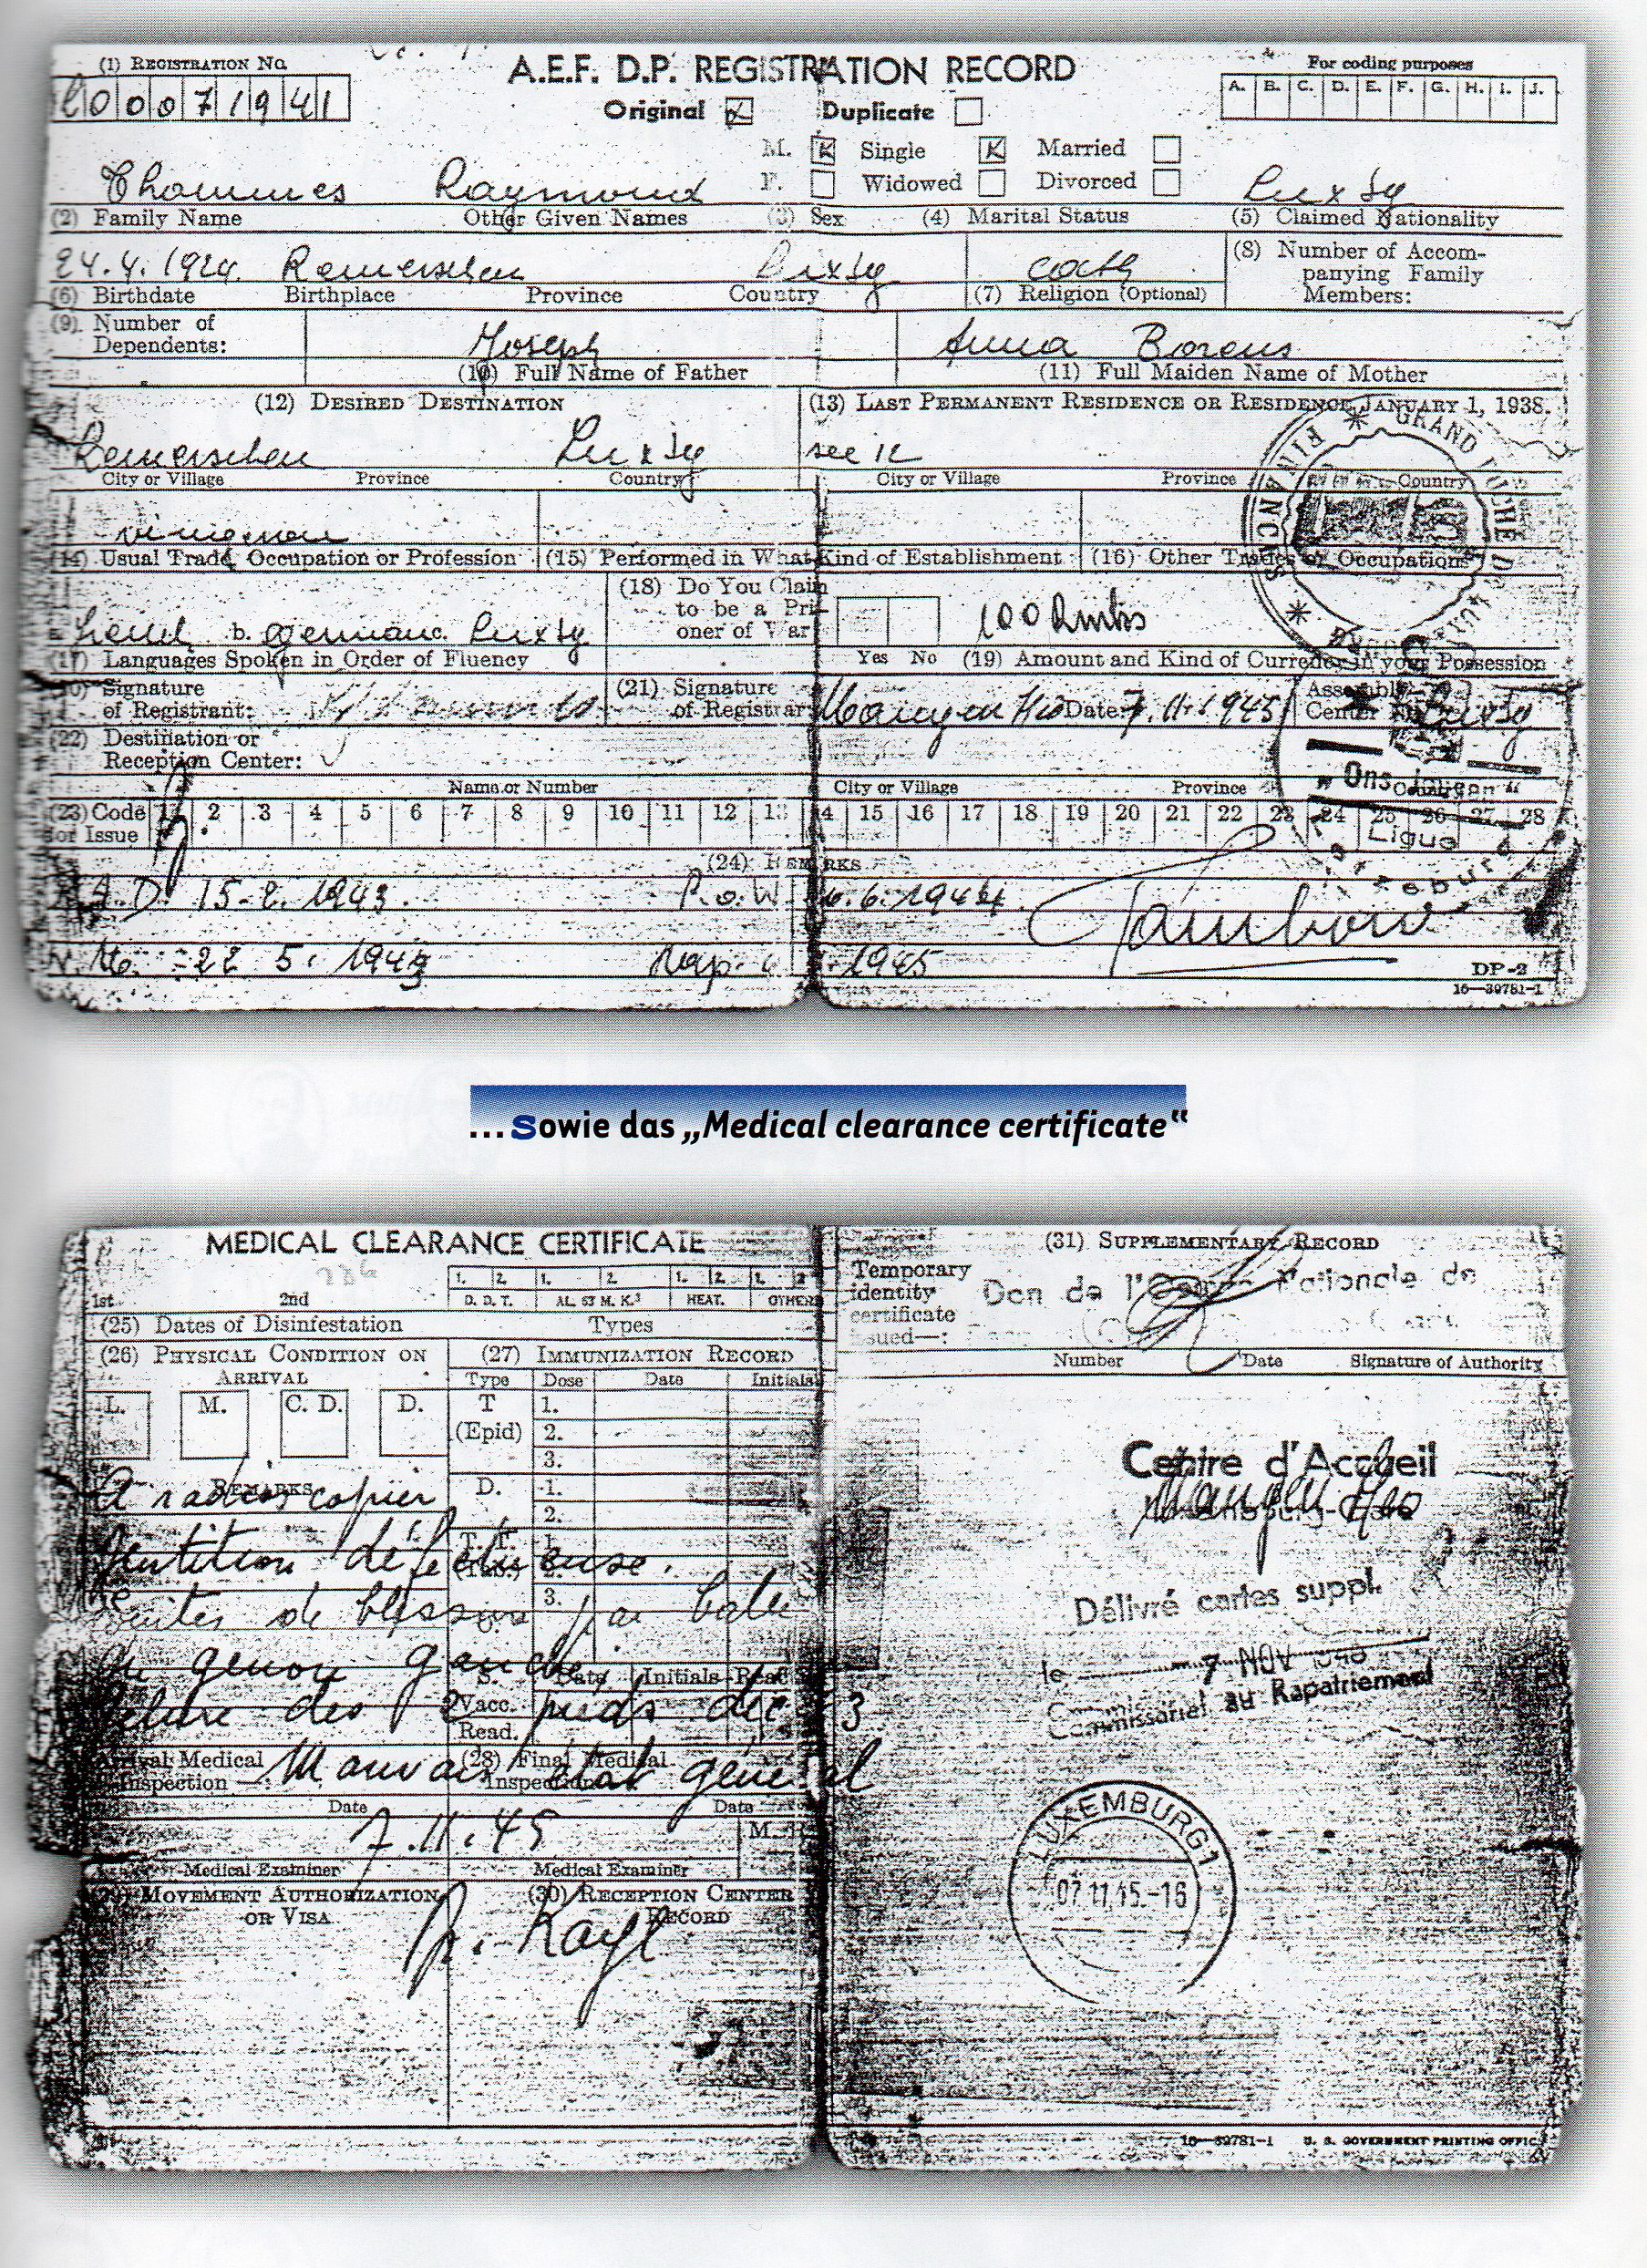 (1) Registration No.
A.E.F. D.P. REGISTRATION RECORD
For coding purposes
00071941
Original Duplicate
A. B. C. D. E. F. G. H. I. J.
M. Single Married
F. Widowed Divorced
Thommes Raymond Luxbg
(2) Family Name Other Given Names (3) Sex (4) Marital Status (5) Claimed Nationality
24.4.1924 Remerschen Luxbg cath
(8) Number of Accom-
panying Family
Members:
(6) Birthdate Birthplace Province Country (7) Religion (Optional)
(9) Number of
Dependents:
Joseph Anna
(10) Full Name of Father (11) Full Maiden Name of Mother
(12) Desired Destination (13) Last Permanent Residence or Residence January 1, 1938.
Remerschen Luxbg see 12
City or Village Province Country City or Village Province Country
vigneron
(14) Usual Trade, Occupation or Profession (15) Performed in What Kind of Establishment (16) Other Trades or Occupations
(18) Do You Claim
to be a Pri-
oner of War
b. german c. Luxbg
100
(17) Languages Spoken in Order of Fluency
Yes No (19) Amount and Kind of Currency in your Possession
(20) Signature
of Registrant:
(21) Signature
of Registrar
Date: 7.11.1945
Assembly
Center No. Luxbg
(22) Destination or
Reception Center:
Name or Number City or Village Province Country
(23) Code
for Issue
1 2 3 4 5 6 7 8 9 10 11 12 13 14 15 16 17 18 19 20 21 22 23 24 25 26 27 28
(24) Remarks
15.2.1943. P.o.W. 6.6.1944 Tambow
22 5. 1943 1945
DP-2
16—39781-1
GRAND DUCHE DE FINANCES
„Ons Jongen“
Ligue
...Sowie das „Medical clearance certificate“
MEDICAL CLEARANCE CERTIFICATE
286
1. 2. 1. 2. 1. 2. 1. 2
1st 2nd D. D. T. AL. 63 M. K.³ HEAT. OTHER
(25) Dates of Disinfestation Types
(26) Physical Condition on
Arrival
(27) Immunization Record
Type Dose Date Initials
L. M. C. D. D.
T
(Epid)
1.
2.
3.
D. 1.
2.
Remarks
A radioscopier
Dentition défectueuse.
Suites de blessure par balle
au genou gauche
Gelure des 2 pieds
3.
S. Date Initials Reac
Vacc.
Read.
Arrival Medical
Inspection
(28) Final Medical
Inspection
Mauvais état général
Date Date
7.11.45
M.
Medical Examiner Medical Examiner
(29) Movement Authorization
or Visa
(30) Reception Center
Record
(31) Supplementary Record
Temporary
identity
certificate
issued—:
Don de l' Nationale de
Number Date Signature of Authority
Centre d'Accueil
Délivré cartes suppl.
le 7 NOV
Commissariat au Rapatriement
LUXEMBURG 1
07.11.45.-16
16—39781-1 U. S. GOVERNMENT PRINTING OFFIC